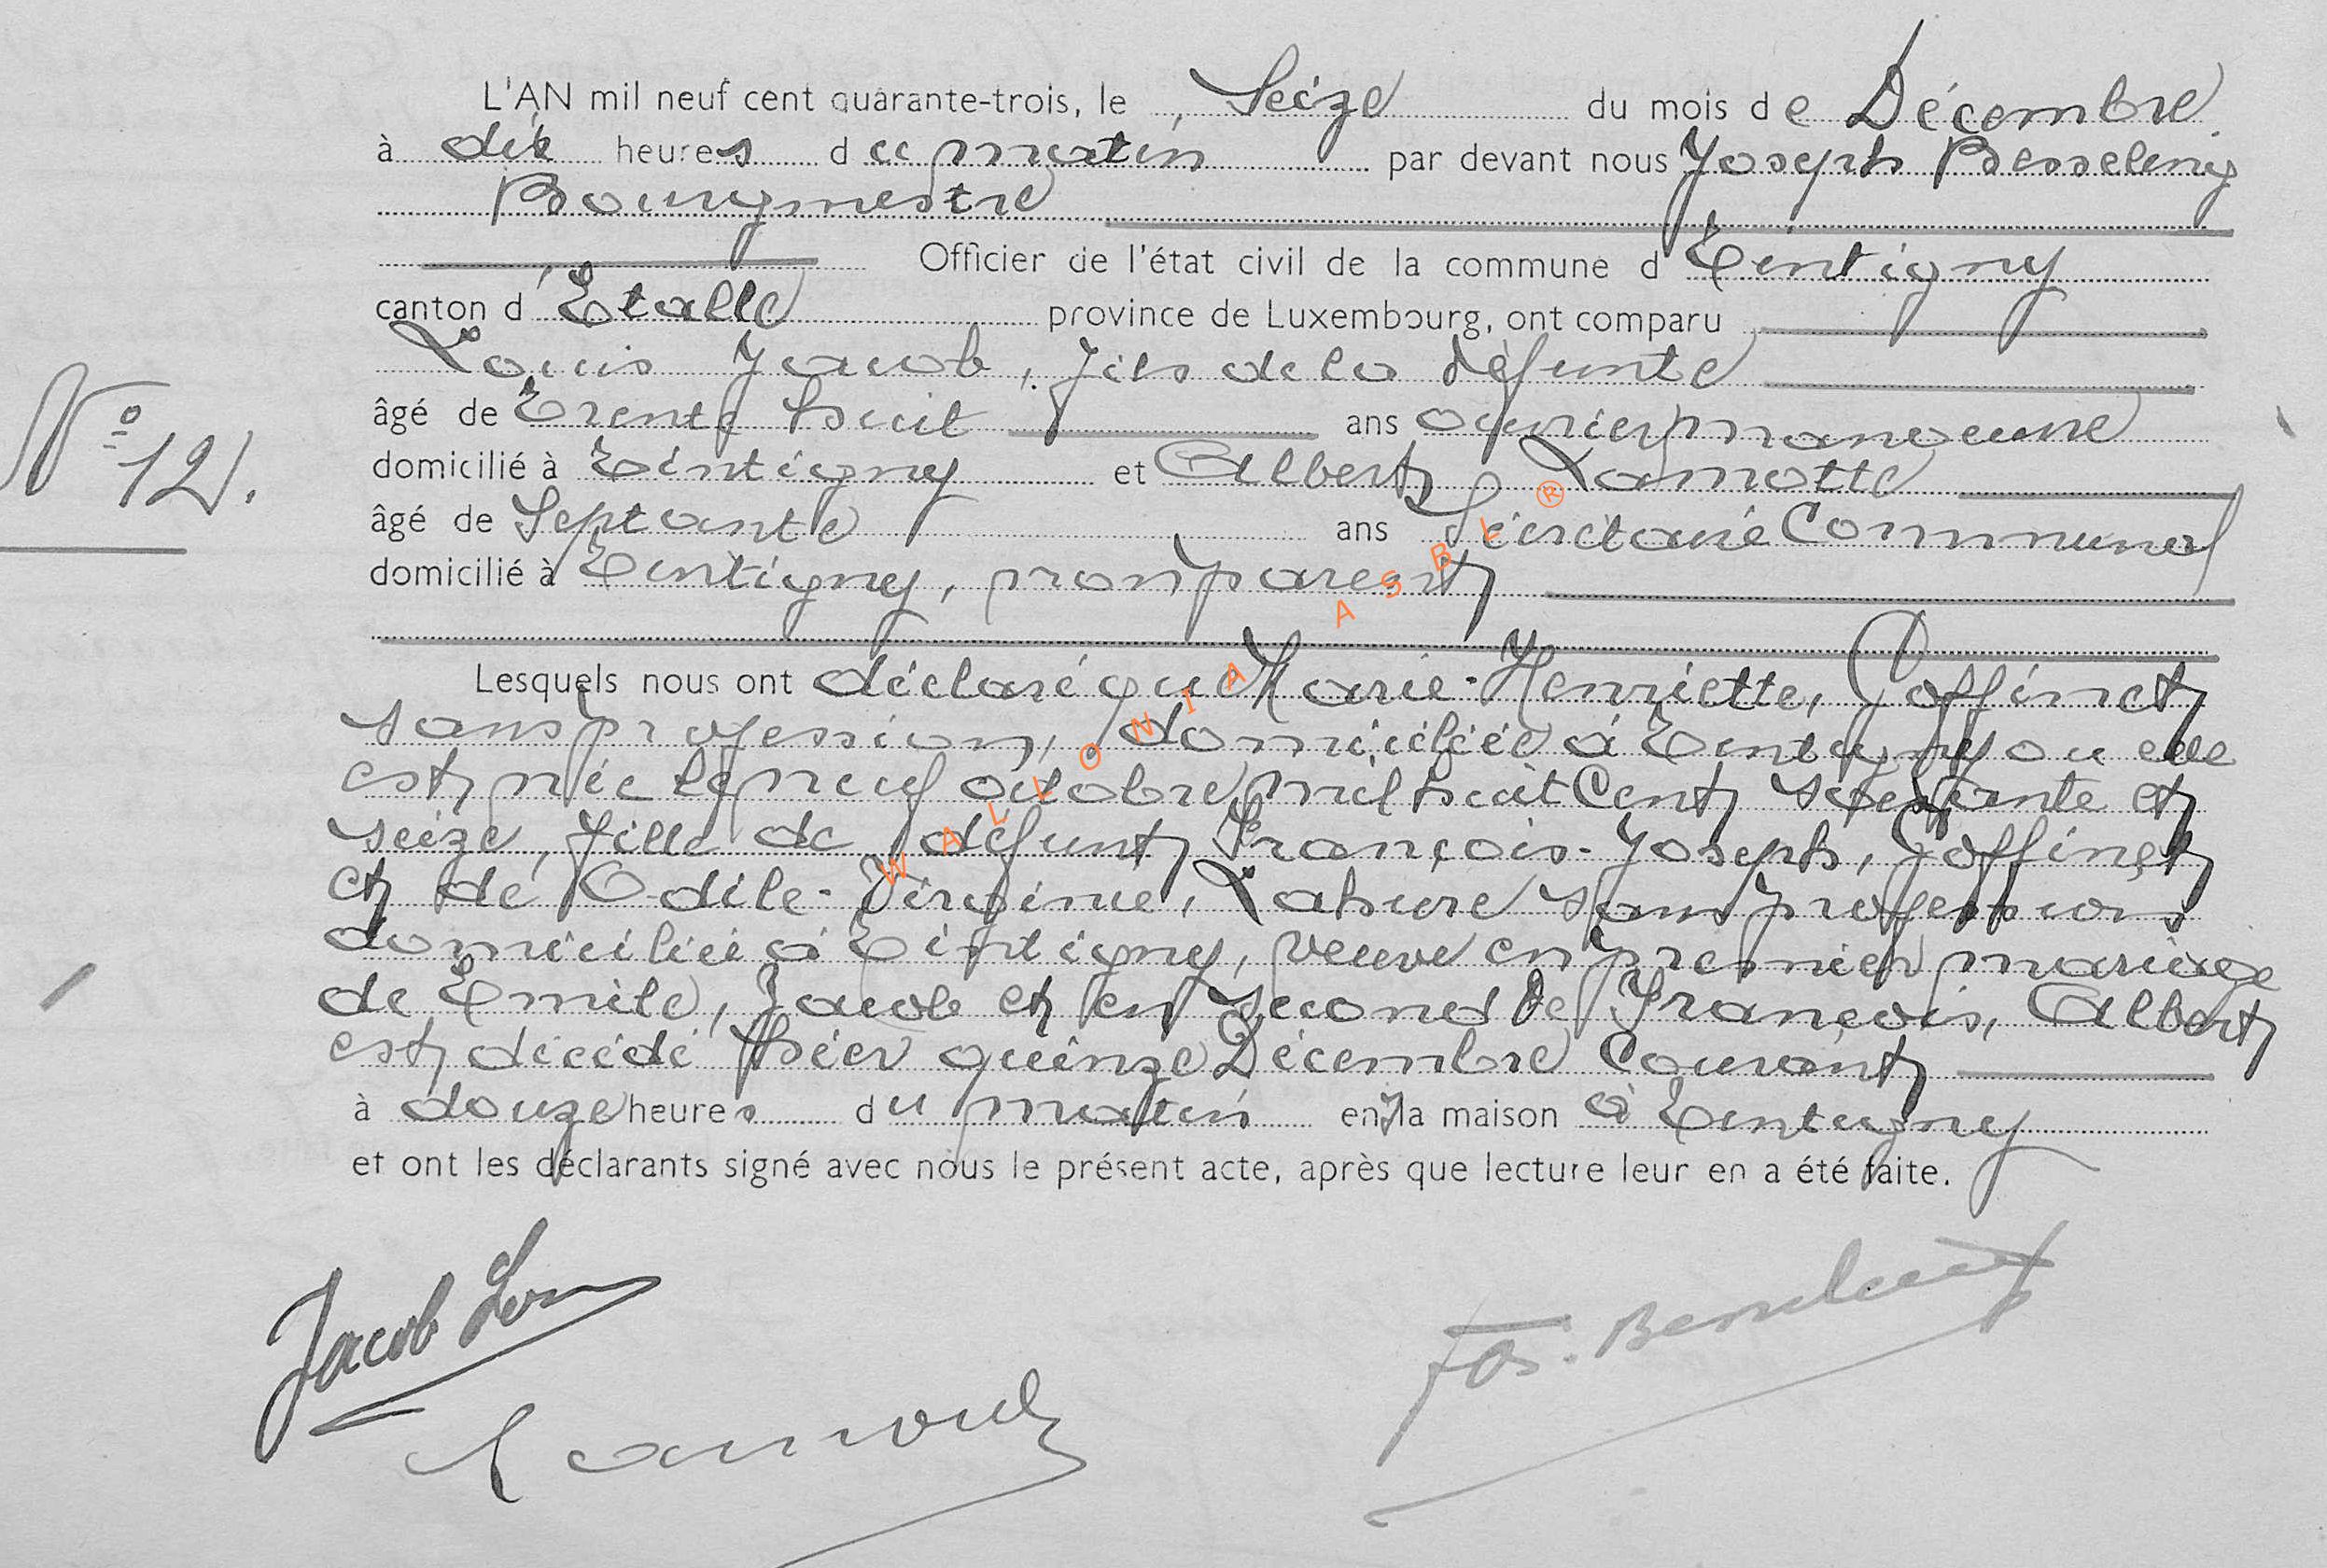 L'AN mil neuf cent quarante-trois, le Seize du mois de Décembre
à dix heures du matin par devant nous Joseph Besseling
Bourgmestre
Officier de l'état civil de la commune d Tintigny
canton d'Etalle province de Luxembourg, ont comparu
Louis Jacob, fils de la défunte
N° 12.
âgé de Trente huit ans ouvrier manoeuvre
domicilié à Tintigny et Albert Lamotte
âgé de Septante ans Secrétaire Communal
domicilié à Tintigny, non parent
Lesquels nous ont déclaré que Marie-Henriette, Goffinet
sans profession, domiciliée à Tintigny ou elle
est née le neuf octobre mil huit Cent et
seize, fille de défunt François-Joseph, Goffinet
et de Odile-Virginie, Lahure sans profession
domiciliée à Tintigny, veuve en premier mariage
de Emile, Jacob et en second de François, Albert
est décédé hier quinze Décembre Courant
à douze heures du matin en la maison à Tintigny
et ont les déclarants signé avec nous le présent acte, après que lecture leur en a été faite.
Jacob Louis
Jos. Besseling
WALLONIA ASBL ®